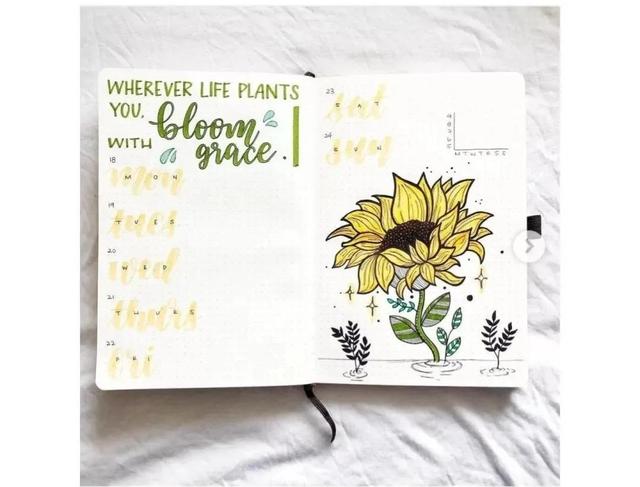 WHEREVER LIFE PLANTS
YOU, bloom
WITH grace.
18
mon
MON
19
tues
TUES
20
wed
WED
21
thurs
THURS
22
fri
FRI
23
sat
SAT
24
sun
SUN
9
8
7
6
5
M T W T F S S